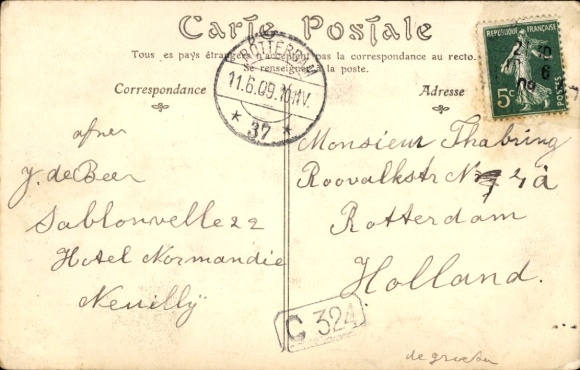 Carte Postale
Tous es pays étrangers n'acceptent pas la correspondance au recto.
Se renseigner à la poste.
Correspondance
Adresse
REPUBLIQUE FRANÇAISE
5c
POSTES
ROTTERDAM
11.6.09.10.11V.
* 37 *
afzner
J. de Beer
Sablonvelle 22
Hotel Normandie
Neuilly
Monsieur Thabring
Roovalkstr No 4 a
Rotterdam
Holland.
C 324